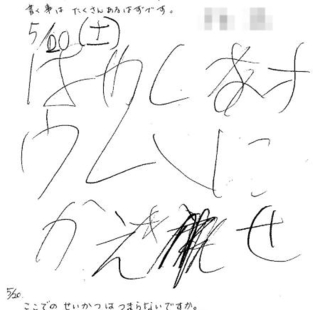 書く事は たくさんあるはずです。
5/20(土)
はやしあさ
ウしいに
かえせ
5/20.
ここでの せいかつは つまらないですか。